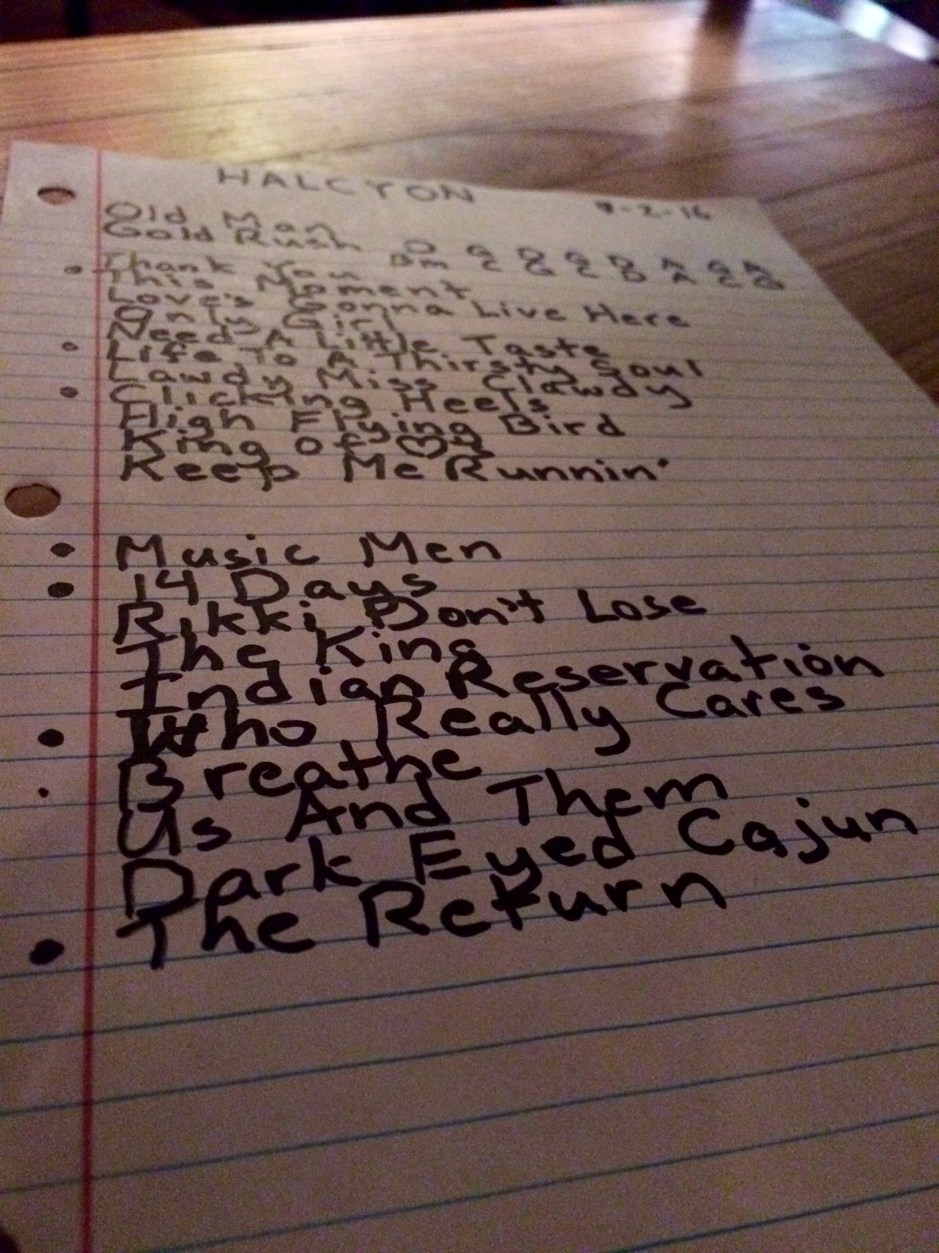 HALCYON
-2-16
Old Man
Gold Rush
Thank You
This Moment
Love's Gonna Live Here
Only Girl
Need A Little Taste
Life To A Thirsty Soul
Lawdy Miss Clawdy
Clicking Heels
High Flying Bird
King Of
Keep Me Runnin'
Music Men
14 Days
Rikki Don't Lose
The King
Indian Reservation
Who Really Cares
Breathe
Us And Them
Dark Eyed Cajun
The Return